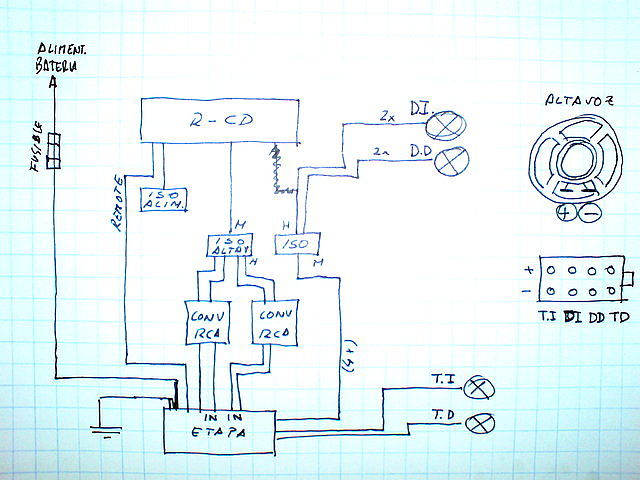 ALIMENT.
BATERIA
FUSIBLE
R-CD
2x
D.I.
2x
D.D
ALTAVOZ
+ -
REMOTE
ISO
ALIM.
H
ISO
ALTAV
H
H
ISO
M
CONV
RCA
CONV
RCA
(4x)
+
-
T.I DI DD TD
IN IN
ETAPA
T.I
T.D